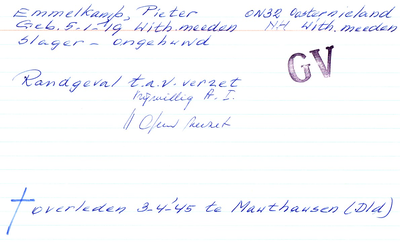 Emmelkamp, Pieter ON32 Oosternieland
Geb. 5-1-'19 With.meeden NH With.meeden
Slager - ongehuwd
GV
Randgeval t.a.v. verzet
vrijwillig A.I.
overleden 3-4-'45 te Mauthausen (Dld)